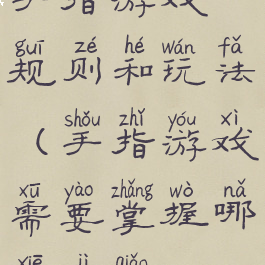 手指游戏
guī zé hé wán fǎ
规则和玩法
shǒu zhǐ yóu xì
（手指游戏
xū yào zhǎng wò nǎ
需要掌握哪
xiē jì qiǎo